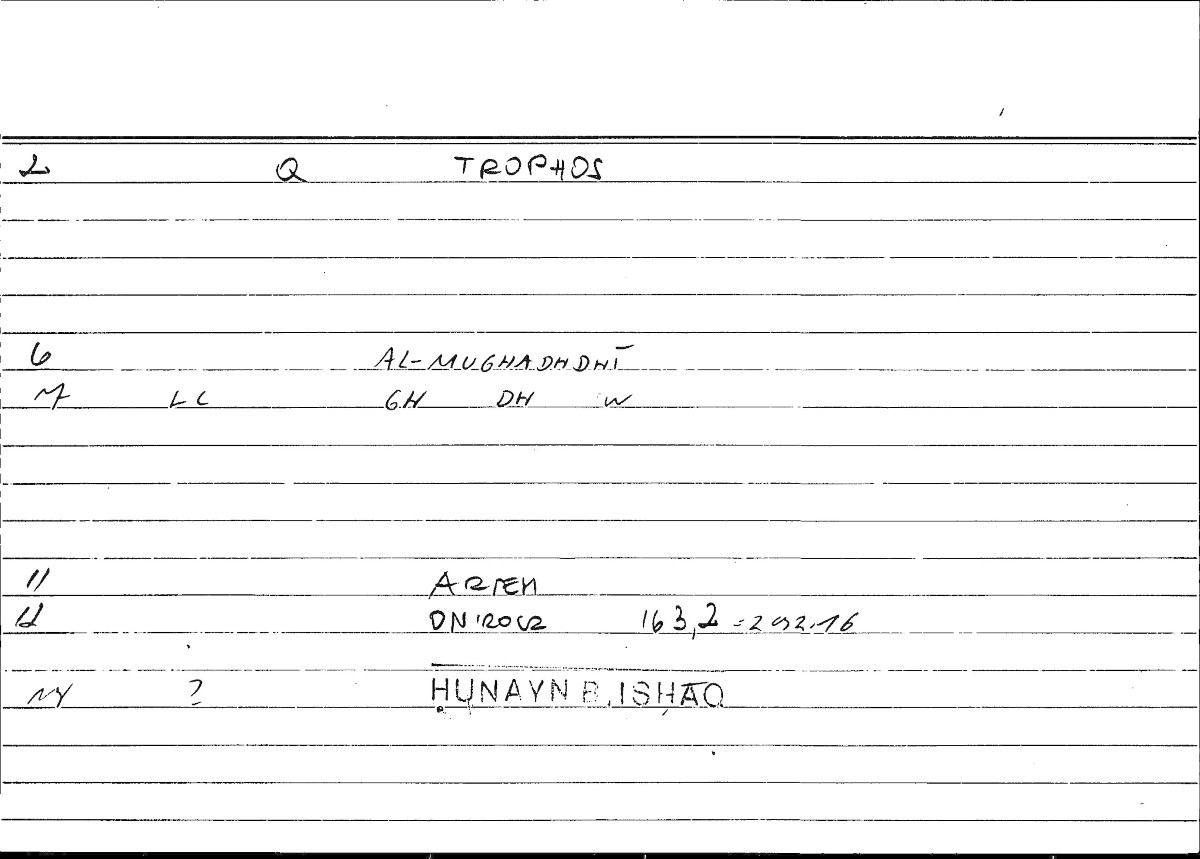 2 Q TROPHOS
6 AL-MUGHADHDHĪ
LC GH DH W
11 ARTEM
12 ONIROCR 163,2 = 292.16
? ḤUNAYN B. ISḤĀQ